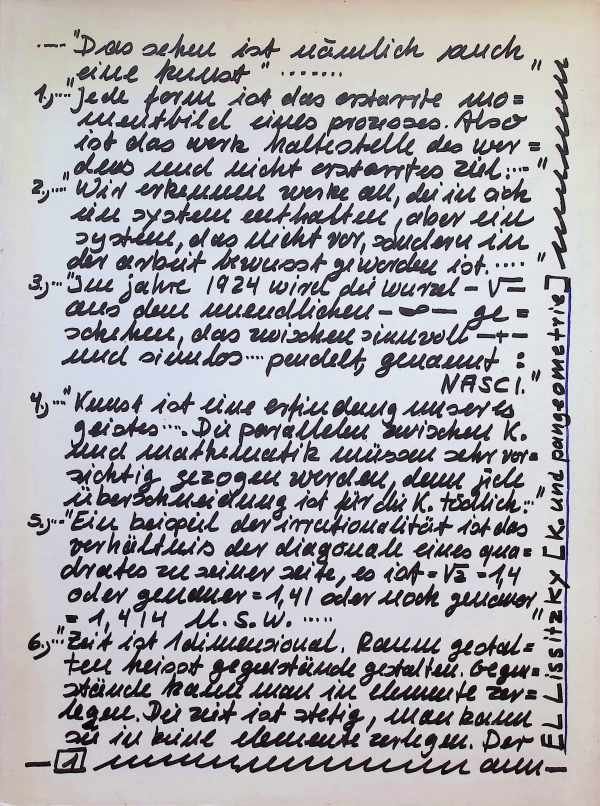 .—.."Das sehen ist nämlich auch
eine kunst" ....... "
1.,.."Jede form ist das erstarrte mo=
mentbild eines prozesses. Also
ist das werk haltestelle des wer=
dens und nicht erstarrtes ziel...."
2.,..."Wir erkennen werke an, die in sich
ein system enthalten, aber ein
system, das nicht vor, sondern in
der arbeit bewusst geworden ist....."
3.,..."Im jahre 1924 wird die wurzel -√-
aus dem unendlichen -∞- ge=
schehen, das zwischen sinnvoll -+-
und sinnlos .... pendelt, genannt :
NASCI."
4.,..."Kunst ist eine erfindung unseres
geistes .... Die parallelen zwischen K.
und mathematik müssen sehr vor=
sichtig gezogen werden, denn jede
überschneidung ist für die K. tödlich."
5.,..."Ein beispiel der irrationalität ist das
verhältnis der diagonale eines qua=
drates zu seiner seite, es ist =√2 =1,4
oder genauer =1,41 oder noch genauer
= 1,414 U.S.W. ....."
6.,..."Zeit ist 1dimensional. Raum gestal=
ten heisst gegenstände gestalten. Gegen=
stände kann man in elemente zer=
legen. Die zeit ist stetig, man kann
sie in keine elemente zerlegen. Der
1
EL Lissitzky [K. und pangeometrie]